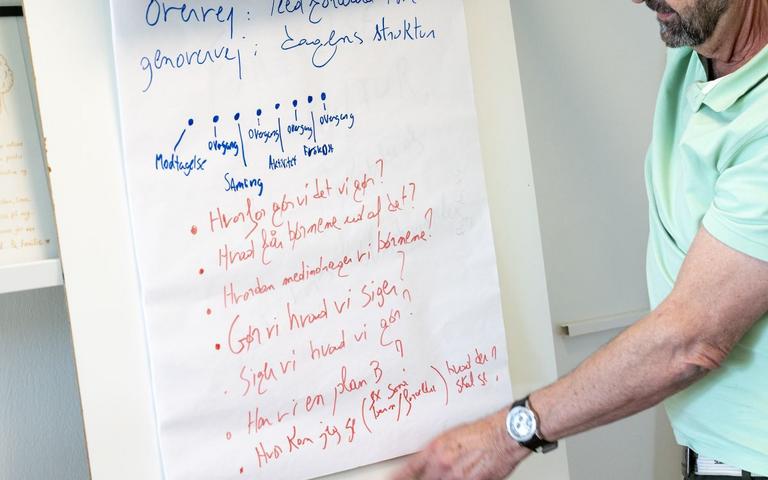 Overvej :
genovervej ; dagens struktur
Modtagelse overgang Samling overgang Aktivitet overgang Frokost overgang
• Hvorfor gør vi det vi gør?
• Hvad får børnene ud af det?
• Hvordan medinddrager vi børnene?
• Gør vi hvad vi siger?
• Siger vi hvad vi gør?
• Har vi en plan B?
• Hvor kan jeg se ( barn/forælder ) hvad der skal se ?
& Familie